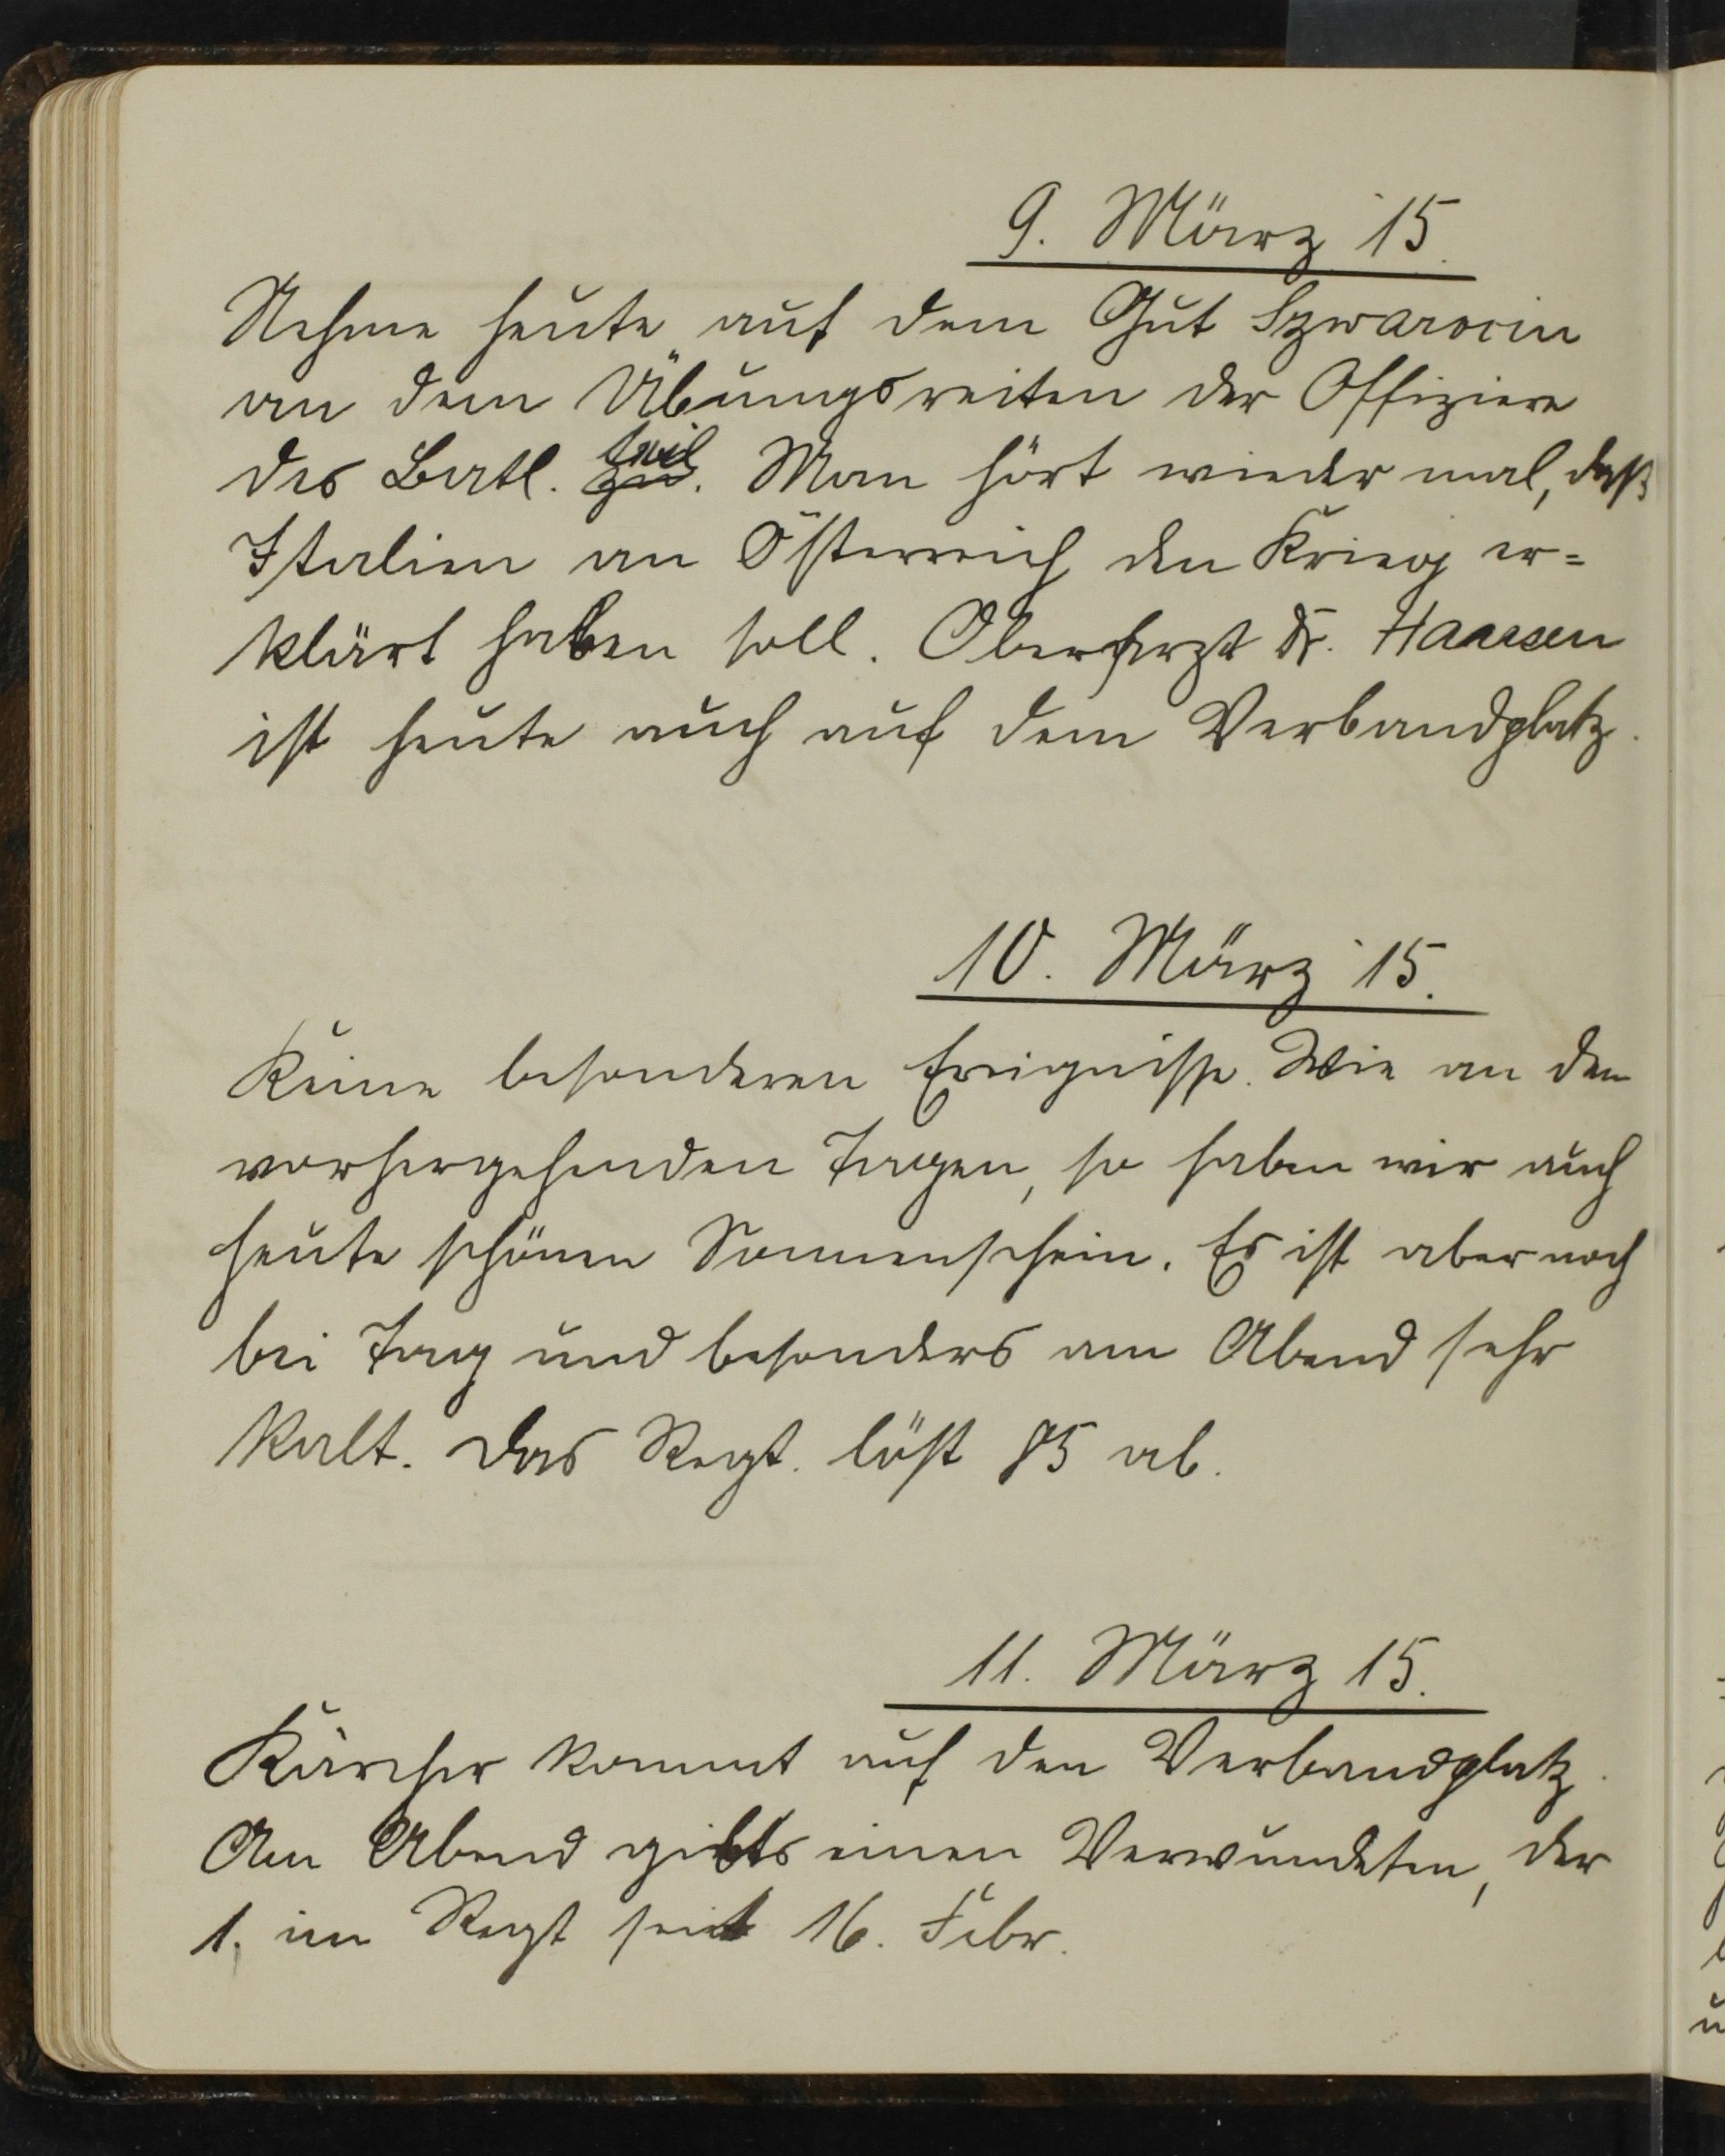 9. März 15.
Nehme heute auf dem Gut Szwarocin
an dem Übungsreiten der Offiziere
des Batl. teil. Man hört wieder mal, daß
Italien an Österreich den Krieg er=
klärt haben soll. Oberarzt Dr. Haassen
ist heute auch auf dem Verbandplatz.
10. März 15.
Keine besonderen Ereignisse. Wie an den
vorhergehenden Tagen, so haben wir auch
heute schönen Sonnenschein. Es ist aber noch
bei Tag und besonders am Abend sehr
kalt. Das Regt. löst 85 ab.
11. März 15.
Kärcher kommt auf den Verbandplatz.
Am Abend gibts einen Verwundeten, der
1. im Regt seit 16. Febr.